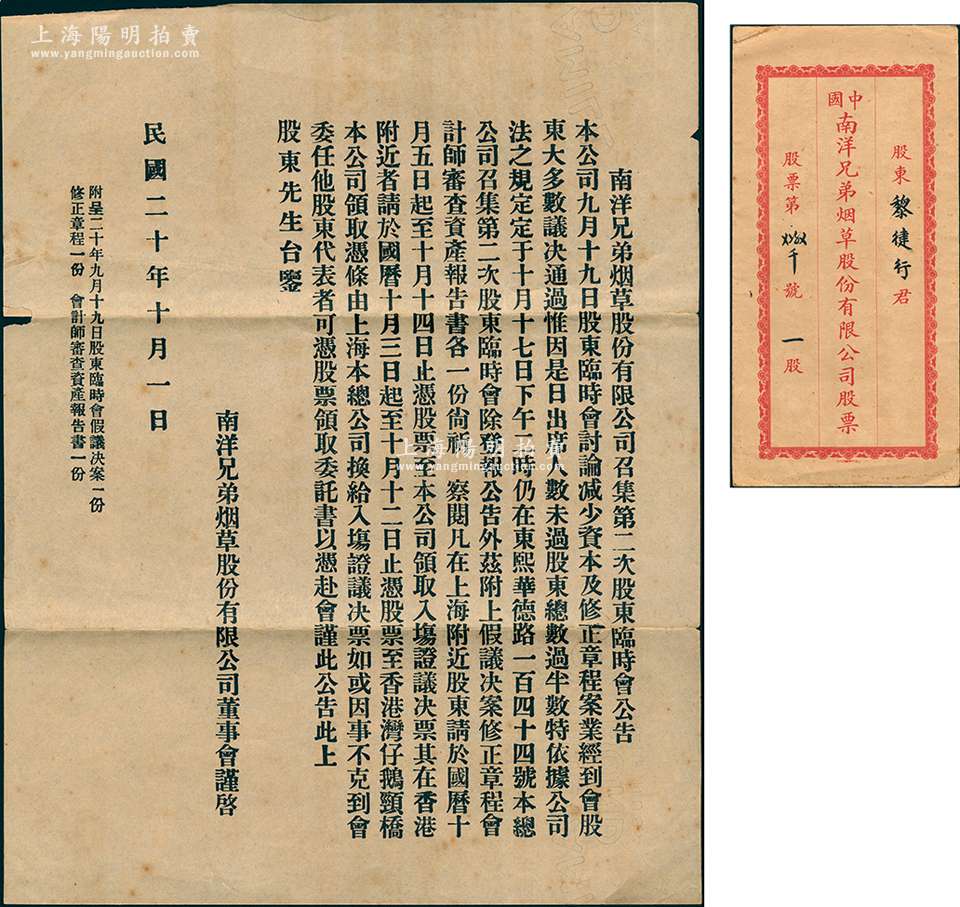 上海陽明拍賣
www.yangmingauction.com
南洋兄弟烟草股份有限公司召集第二次股東臨時會公告
本公司九月十九日股東臨時會討論減少資本及修正章程案業經到會股
東大多數議决通過惟因是日出席人數未過股東總數過半數特依據公司
法之規定定于十月十七日下午二時仍在東熙華德路一百四十四號本總
公司召集第二次股東臨時會除登報公告外茲附上假議决案修正章程會
計師審查資產報告書各一份尙祈 察閱凡在上海附近股東請於國曆十
月五日起至十月十四日止憑股票至本公司領取入塲證議决票其在香港
附近者請於國曆十月三日起至十月十二日止憑股票至香港灣仔鵝頸橋
本公司領取憑條由上海本總公司換給入塲證議决票如或因事不克到會
委任他股東代表者可憑股票領取委託書以憑赴會謹此公告此上
股東先生台鑒
南洋兄弟烟草股份有限公司董事會謹啓
民國二十年十月一日
附呈二十年九月十九日股東臨時會假議决案一份
修正章程一份 會計師審查資產報告書一份
上海陽明拍賣
www.yangmingauction.com
股東黎徤行君
中國南洋兄弟烟草股份有限公司股票
股票第 千號 一股